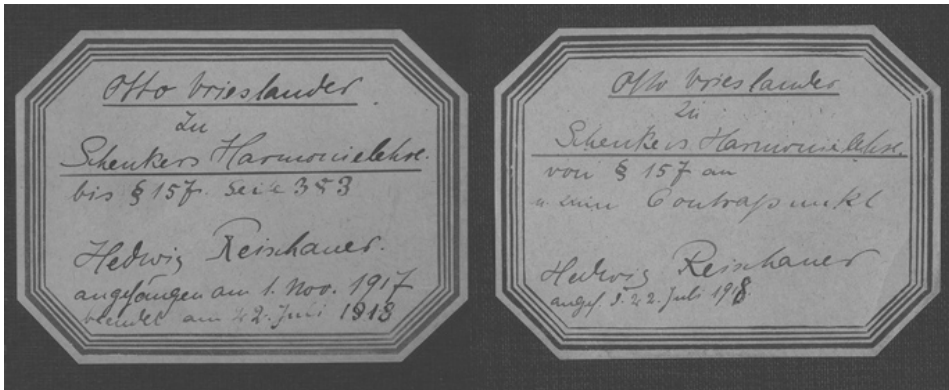 Otto Vrieslander
zu
Schenkers Harmonielehre.
bis § 157. Seite 383
Hedwig Reischauer.
angefangen am 1. Nov. 1917
beendet am 22. Juli 1918
Otto Vrieslander
zu
Schenkers Harmonielehre.
von § 157 an
u Contrapunkt
Hedwig Reischauer
angef. 22. Juli 1918.